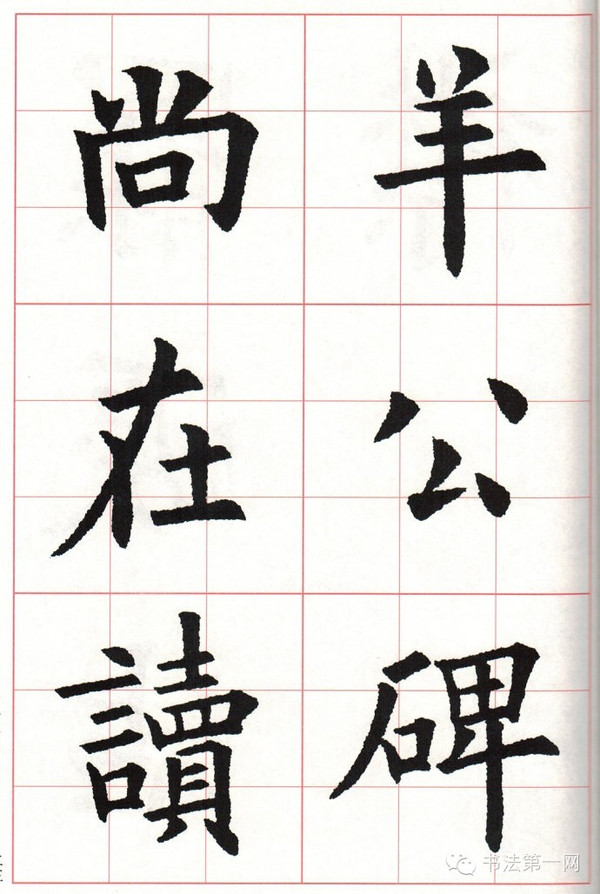 羊公碑
尚在讀
书法第一网